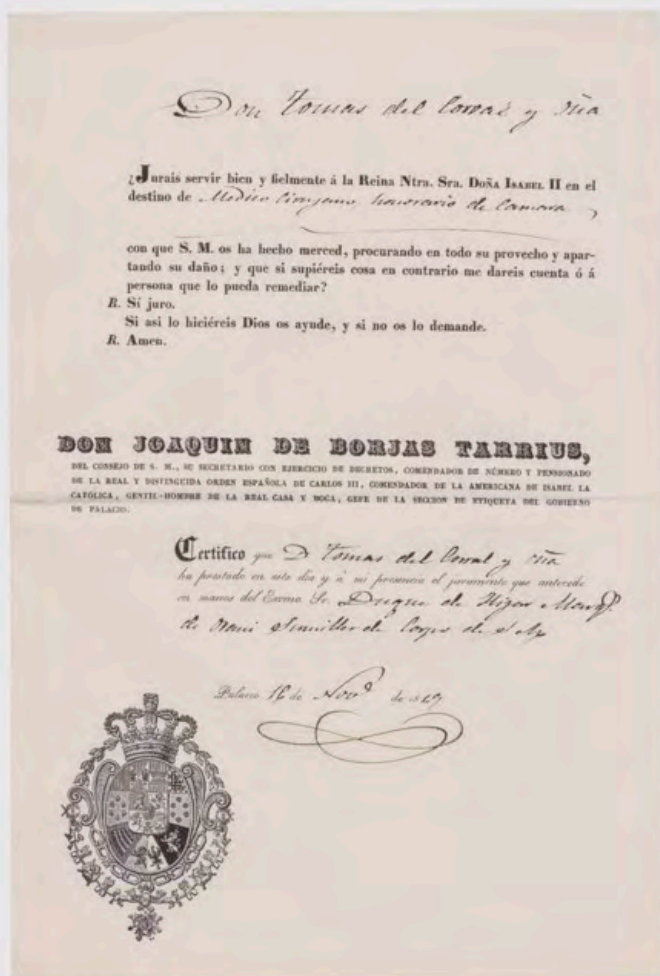 Don Tomas del Corral y Oña
¿Jurais servir bien y fielmente á la Reina Ntra. Sra. DOÑA ISABEL II en el
destino de Medico Cirujano honorario de Camara
con que S. M. os ha hecho merced, procurando en todo su provecho y apar-
tando su daño; y que si supiéreis cosa en contrario me dareis cuenta ó á
persona que lo pueda remediar?
R. Sí juro.
Si asi lo hiciéreis Dios os ayude, y si no os lo demande.
R. Amen.
DON JOAQUIN DE BORJAS TARRIUS,
DEL CONSEJO DE S. M., SU SECRETARIO CON EJERCICIO DE DECRETOS, COMENDADOR DE NÚMERO Y PENSIONADO
DE LA REAL Y DISTINGUIDA ORDEN ESPAÑOLA DE CARLOS III, COMENDADOR DE LA AMERICANA DE ISABEL LA
CATÓLICA, GENTIL-HOMBRE DE LA REAL CASA Y BOCA, GEFE DE LA SECCION DE ETIQUETA DEL GOBIERNO
DE PALACIO.
Certifico que D. Tomas del Corral y Oña
ha prestado en este dia y á mi presencia el juramento que antecede
en manos del Excmo. Sr. Duque de Hijar Marqs.
de Orani Sumiller de Corps de S. M.
Palacio 16 de Nove. de 1847